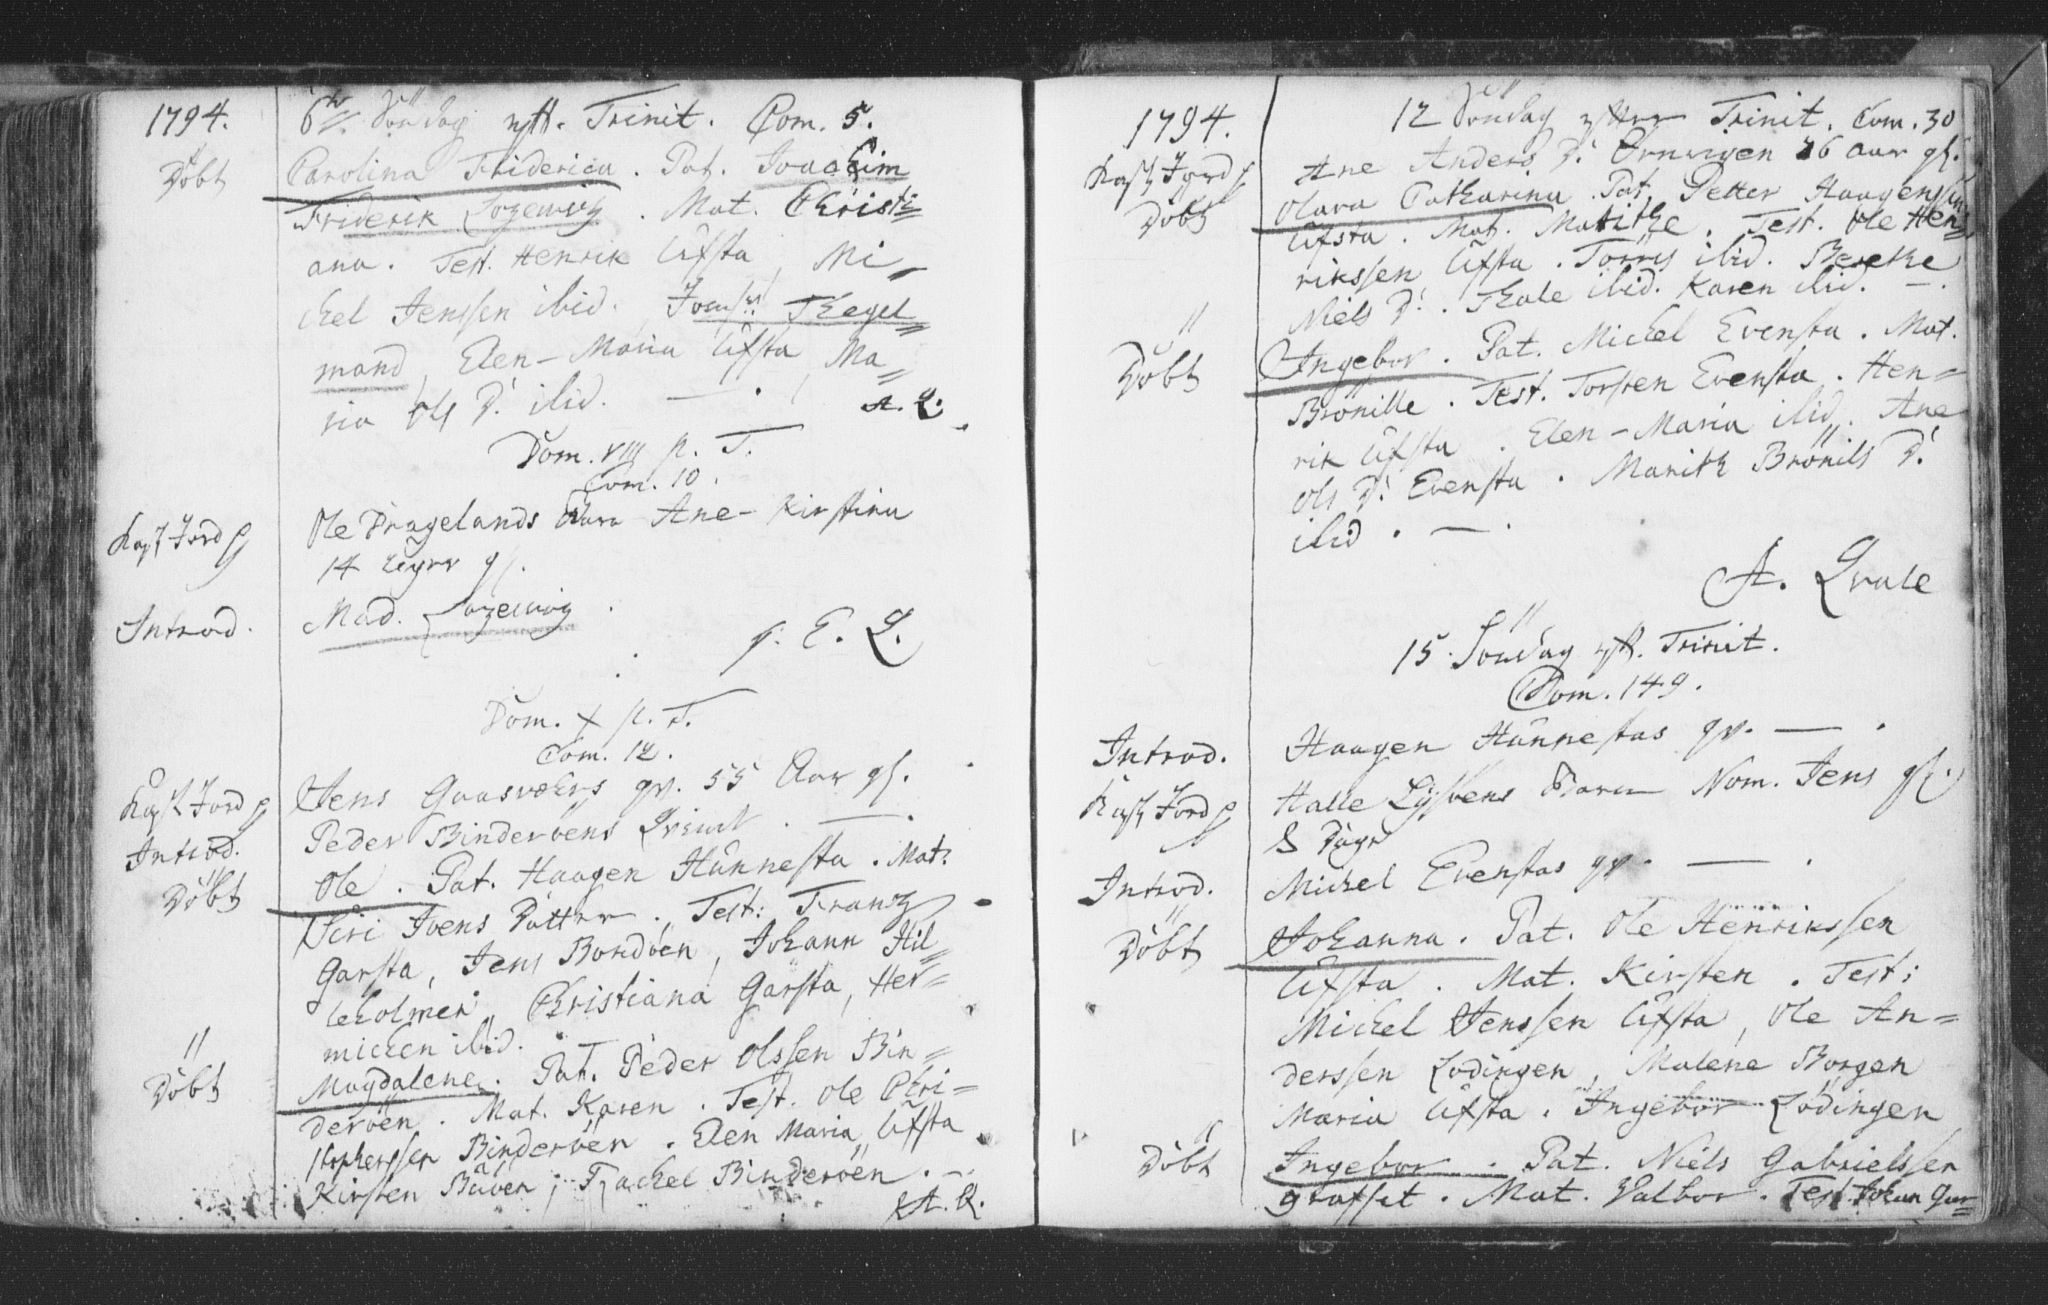 1794. 6te Söndag eft. Trinit. Com. 5.
Döbt Carolina Friderica. Pat. Joachim
Friderik Lozewitz. Mat. Christi=
ana. Test. Henrik Ûfsta, Mi=
chel Jenssen ibid. Thegel=
mand, Elen-Maria Ûfsta, Ma=
ria Ols D. ibid. — . A. Q.
Dom. VIII p. T.
Com. 10.
Kast Jord p Ole Dragelands Ane-Kirstina
14 gl.
Introd. Mad. Lozewitz.
p. E. L.
Dom. X p. T.
Com. 12.
Kast Jord p Jens Gaasværs gv. 55 Aar gl.
Introd. Peder Binderöens Qvinde. —.
Döbt Ole. Pat. Haagen Hünnesta. Mat.
Siri Ivens Datter. Test: Frantz
Garsta, Jens Bordöen, Johann Hil=
leholmen, Christiana Garsta, Her=
michen ibid.
Döbt Magdalene. Pat. Peder Olssen Bin=
deröen. Mat. Karen. Test. Ole Chri=
stophersen Binderöen. Elen Maria Ûfsta
Kirsten Bûven; Rachel Binderöen.
A. Q.
1794. 12 Söndag efter Trinit. Com. 30
Kast Jord p Ane Anders D. 76 aar gl.
Döbt Olava Catharina. Pat. Petter Haagenssen
Ûfsta. Mat. Marithe. Test. Ole Hen=
rikssen Ûfsta. Torris ibid. Berethe
Niels D. Thale ibid. Karen ibid. —.
Döbt Ingebor. Pat. Michel Evensta. Mat.
Brönille. Test. Torsten Evensta. Hen=
rik Ûfsta. Elen-Maria ibid. Ane
Ols D. Evensta. Marith Brönils D.
ibid. —.
A. Qvale
15. Söndag eft. Trinit.
Com. 149.
Introd. Haagen Hünnestas qv. —.
Kast Jord p Halle Barn Nom. Jens gl.
8 Dage
Introd. Michel Evenstas qv. —.
Döbt Johanna. Pat. Ole Henrikssen
Ûfsta. Mat. Kirsten. Test:
Michel Jenssen Ûfsta, Ole An=
derssen Lödingen, Malene Borgen
Maria Ûfsta. Ingebor Lödingen
Döbt Ingebor. Pat. Niels Gabrielssen
Graffset. Mat. Valbor. Test. Johan Gun=